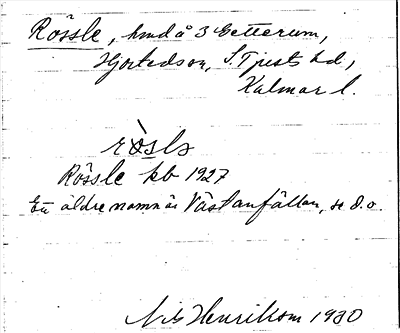 Rössle, hmd å 3 Getterum,
Hjorteds sn, S. Tjusts hd,
Kalmar l.
rösls
Rössle kb 1927
Ett äldre namn är Västanfällan, se d.o.
Nils Henrikson 1930